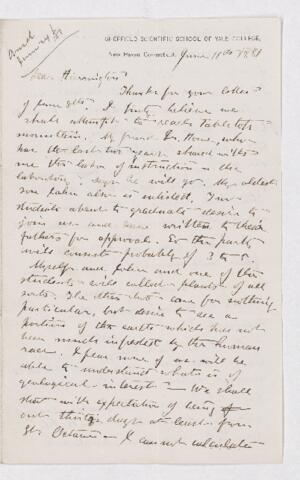 Ansd
June 24/81
SHEFFIELD SCIENTIFIC SCHOOL OF YALE COLLEGE,
New Haven, Connecticut, June 11th 1881
Dear Harrington
Thanks for your letter
of June 8th. I fully believe we
shall attempt to reach table top
mountain. My friend Dr. Howe, who
has the last two years shared with
me the labor of instruction in the
laboratory says he will go. My oldest
son also is interested. Two
students about to graduate desire to
join us and have written to their
fathers for approval. So the party
will consist probably of 3 to 5.
Myself and and one of the
students will collect plants of all
sorts. The other two care for nothing
particular, but desire to see a
portion of the earth which has not
been much infested by the human
race. I fear none of us will be
able to understand what is of
geological interest — We shall
start with expectation of being
out thirty days at least from
I can not calculate